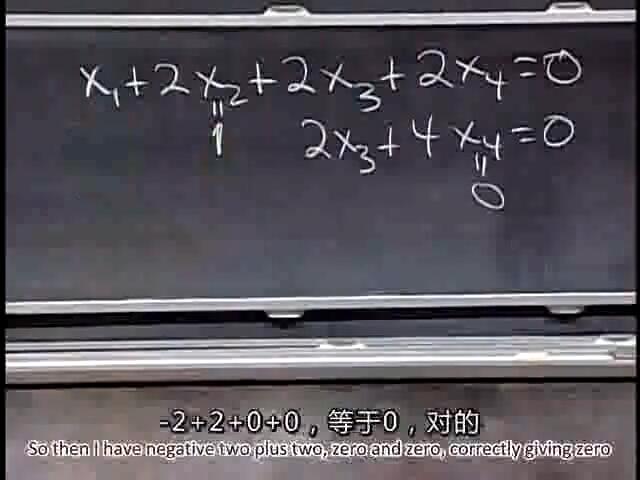 x₁+2x₂+2x₃+2x₄=0
"
1
2x₃+4x₄=0
"
0
-2+2+0+0，等于0，对的
So then I have negative two plus two, zero and zero, correctly giving zero